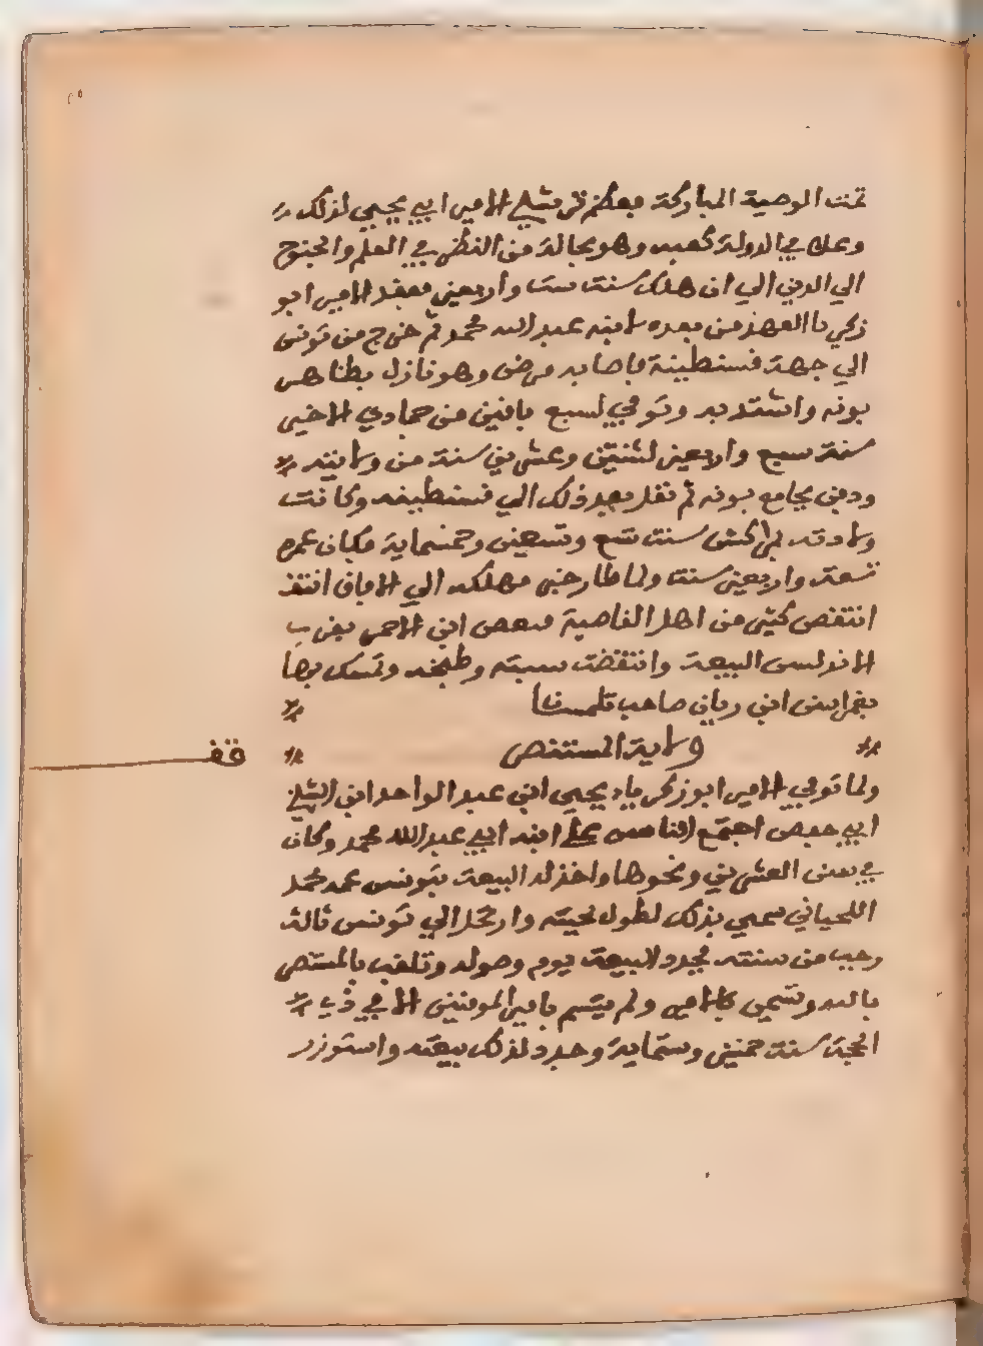 تمت الوصية المباركة فعظم ترشيح الامير ابي يحيى لذلك
وعلا في الدولة كعبه وهو بحاله من النظر في العلم والجنوح
الي الدين الي ان هلك سنة ست واربعين فعقد الامير ابو
زكريا العهد من بعده لابنه عبد الله محمد ثم خرج من تونس
الي جهة قسنطينة فاصابه مرض وهو نازل بظاهر
بونه واشتد به وتوفي لسبع باقين من جمادي الاخير
سنة سبع واربعين لثنتين وعشرين سنة من ولايته
ودفن بجامع بونه ثم نقل بعد ذلك الي قسنطينه وكانت
ولادته بمراكش سنت تسع وتسعين وخمسماية فكان عمره
تسعة واربعين سنت ولما طار خبر مهلكه الي الافاق انتقد
انتقض كثير من اهل القاصية ابن الاحمر بغرب
الاندلس البيعة وانتقضت سبته وطنجه وتمسك بها
يغمراسن ابن زيان صاحب تلمسان
ولاية المستنصر
قف
ولما توفي الامير ابو زكرياء يحيى ابن عبد الواحد ابن الشيخ
ابي حفص اجتمع الناس على ابنه ابي عبد الله محمد وكان
في سن العشرين ونحوها واخذ له البيعة بتونس عمه محمد
اللحياني سمي بذلك لطول لحيته وارتحل الي تونس ثالث
رجب من سنته فجدد البيعة يوم وصوله وتلقب بالمستنصر
بالله وتسمى كالامير ولم يتسم بامير المومنين الا في ذي
الحجة سنت خمسين وستماية وجدد لذلك بيعته واستوزر